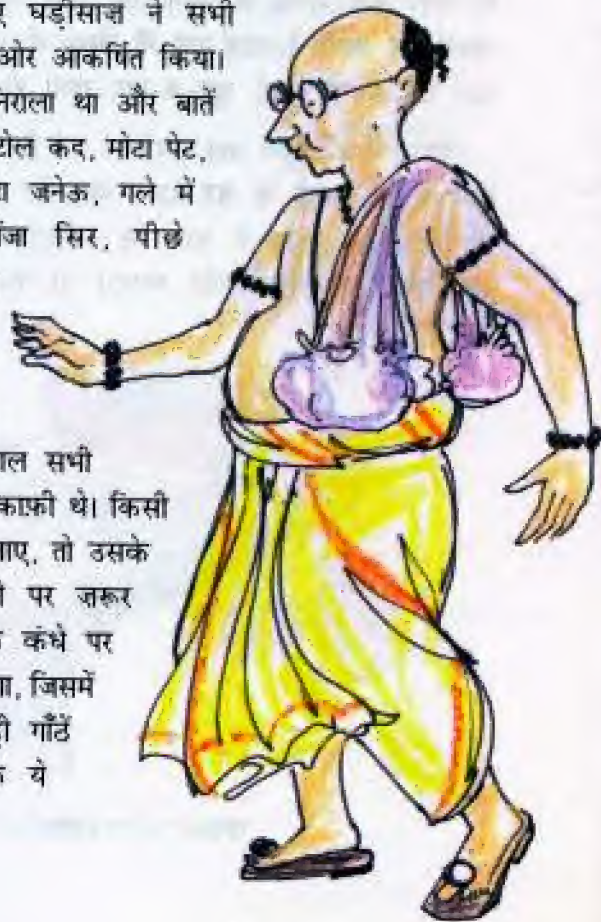 घड़ीसाज़ ने सभी
ओर आकर्षित किया।
निराला था और बातें
कद, मोटा पेट,
जनेऊ, गले में
सिर, पीछे
सभी
काफ़ी थे। किसी
जाए, तो उसके
पर ज़रूर
कंधे पर
जिसमें
गाँठें
ये